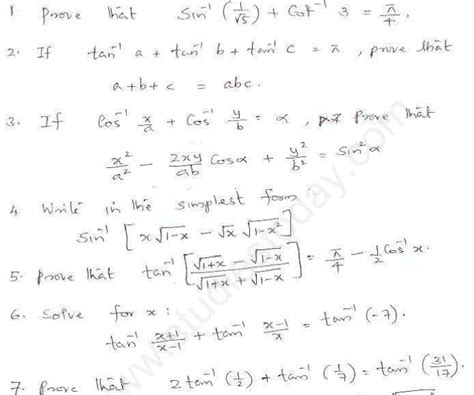 1 Prove that sin⁻¹ (1/√5) + Cot⁻¹ 3 = π/4.
2. If tan⁻¹ a + tan⁻¹ b + tan⁻¹ c = π, prove that
a+b+c = abc.
3. If Cos⁻¹ x/a + Cos⁻¹ y/b = α, Prove that
x²/a² - 2xy/ab Cosα + y²/b² = Sin²α
4 Write in the simplest form:
Sin⁻¹ [x√1-x - √x √1-x²]
5. Prove that tan⁻¹ [√1+x - √1-x / √1+x + √1-x] = π/4 - 1/2 Cos⁻¹ x.
6. Solve for x:
tan⁻¹ x+1/x-1 + tan⁻¹ x-1/x = tan⁻¹ (-7).
7. Prove that 2tan⁻¹ (1/2) + tan⁻¹ (1/7) = tan⁻¹ (31/17).